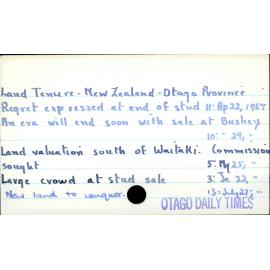 Land Tenure - New Zealand - Otago Province
Regret expressed at end of stud 11: Ap 22, 1967.
An era will end soon with sale at Bushey
10: " 29, "
Land valuation south of Waitaki. Commission
sought 5: My 25, "
Large crowd at stud sale 3: Je 22, "
New land to conquer. 13: July 27, "
OTAGO DAILY TIMES